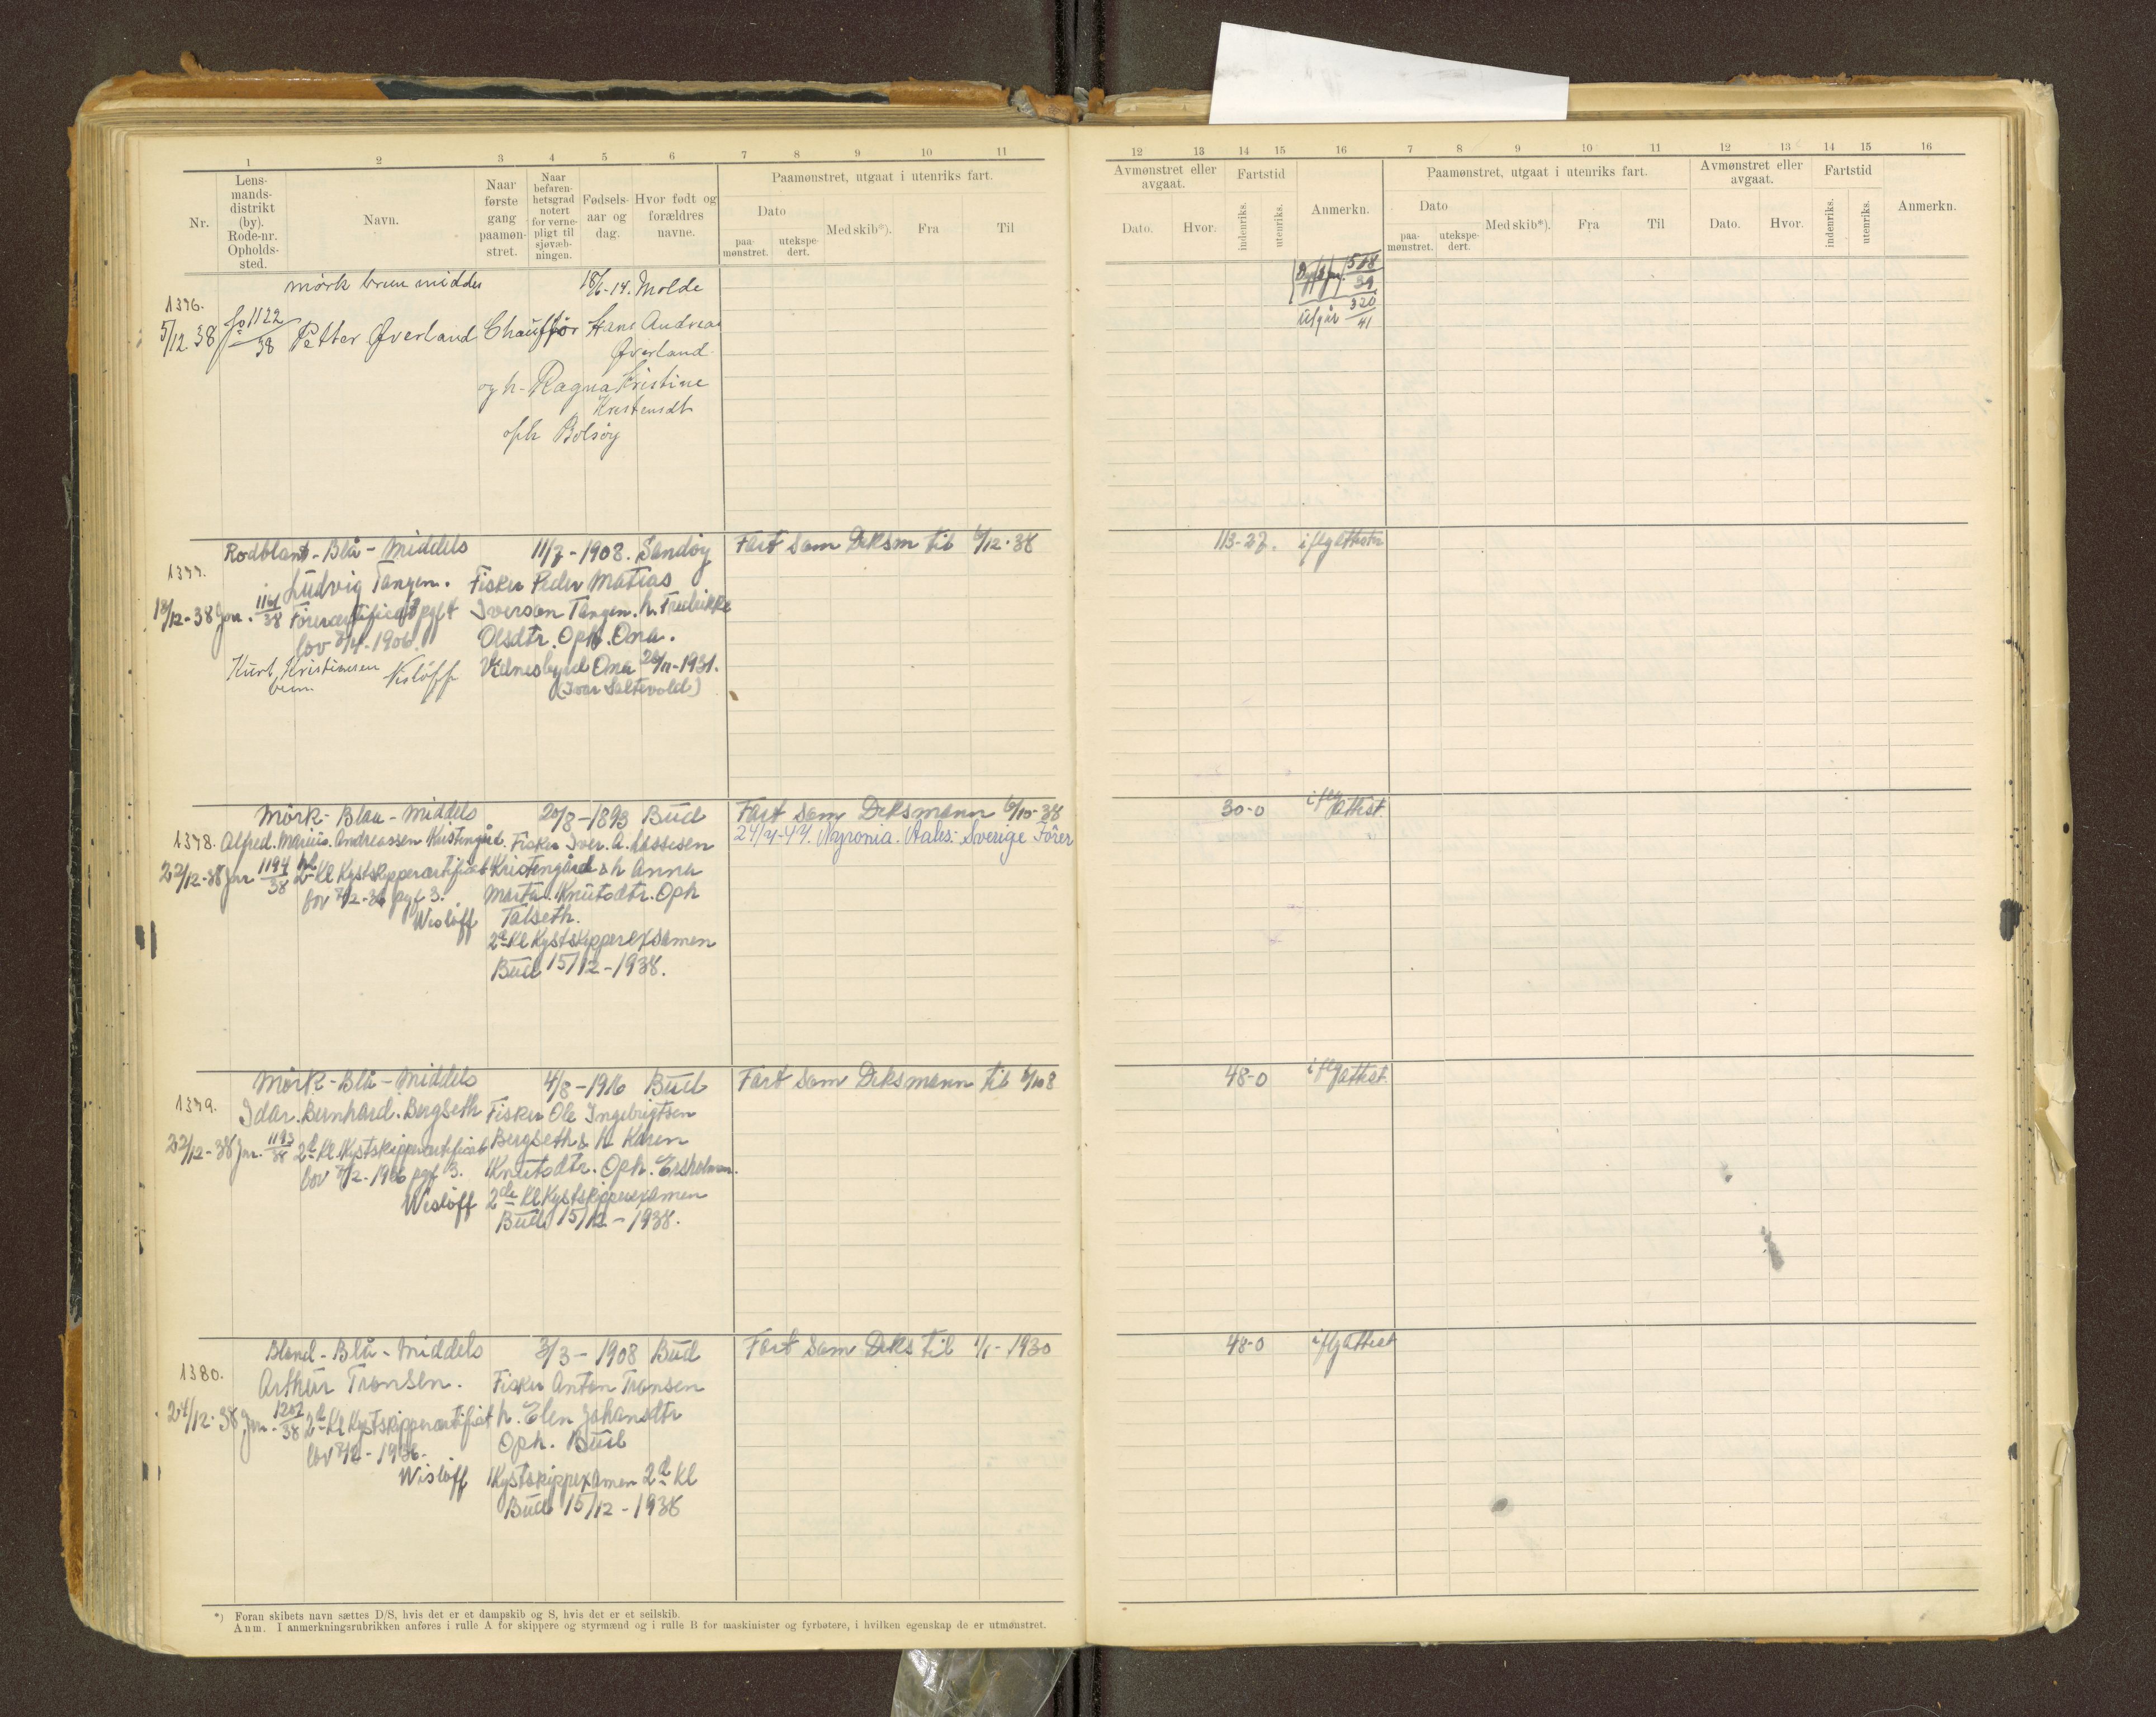 1 2 3 4 5 6 7 8 9 10 11
Nr.
Lens-
mands-
distrikt
(by).
Rode-nr.
Opholds-
sted.
Navn.
Naar
første
gang
paamøn-
stret.
Naar
befaren-
hetsgrad
notert
for verne-
pligt til
sjøvæb-
ningen.
Fødsels-
aar og
dag.
Hvor født og
forældres
navne.
Paamønstret, utgaat i utenriks fart.
Dato
paa-
mønstret.
utekspe-
dert.
Med skib*).
Fra
Til
mörk brun middels 18/6-14. Molde
1376.
5/12 38 1122/38 Petter Øverland Chauffør Hans Andreas
Øverland
og h. Ragna Kristine
Kristensdt
oph Bolsöy
Rodbland - Blå - Middels 11/7 - 1908. Sandöy Fart som Deksm til 6/12-38
1377.
Ludvig Tangen. Fisker Peder Matias
18/12-38 Jnr. 1161/38 Förercertificat pgf 4 Iverson Tangen. h. Fredrikke
lov 7/4-1906. Olsdtr. Oph. Ona.
Kurt Kristiansen Vidnesbyrd Ona 26/11-1931.
(Ivar Saltevold)
Mörk - Blaa - Middels 20/8 - 1893 Bud Fart som Deksmann 6/10-38
1378. Alfred. Marius. Andreassen Kristengård. Fisker Iver. A. 24/4-44. Nyronia. Aales: Sverige Förer
22/12-38 Jnr 1194/38 2d Kl Kystskippercertificat Kristengård & h Anna
lov 7/2-36 pgf 3. Marta. Knutsdtr. Oph
Wislöff Talseth.
2d Kl Kystskipperexamen
Bud 15/12 - 1938.
Mörk - Blå - Middels 4/8 - 1916 Bud Fart som Deksmann til
1379.
Idar. Bernhard. Bergseth Fisker Ole Ingebrigtsen
22/12-38 Jnr. 1193/38 2d Kl. Kystskippercertificat Bergseth & h Karen
lov 7/2-1936 pgf 3. Knutsdtr. Oph.
Wislöff 2de Kl Kystskipperexamen
Bud 15/12 - 1938.
Blond - Blå - Middels 3/3 - 1908 Bud Fart som Deks til 1/1 - 1930
1380.
Arthur Tronsen. Fisker Anton Tronsen
24/12-38 Jnr. 1201/38 2d Kl Kystskippercertificat h. Elen Johansdtr
lov 7/2 - 1936. Oph. Bud
Wislöff Kystskipperexamen 2d Kl
Bud 15/12 - 1938
*) Foran skibets navn sættes D/S, hvis det er et dampskib og S, hvis det er et seilskib.
Anm. I anmerkningsrubrikken anføres i rulle A for skippere og styrmænd og i rulle B for maskinister og fyrbøtere, i hvilken egenskap de er utmønstret.
12 13 14 15 16 7 8 9 10 11 12 13 14 15 16
Avmønstret eller
avgaat.
Dato.
Hvor.
Fartstid
indenriks.
utenriks.
Anmerkn.
Paamønstret, utgaat i utenriks fart.
Dato
paa-
mønstret.
utekspe-
dert.
Med skib*).
Fra
Til
Avmønstret eller
avgaat.
Dato.
Hvor.
Fartstid
indenriks.
utenriks.
Anmerkn.
518/39
Utgår 320/41
113-27. iflg attester
30-0 iflg attest.
48-0 iflg attest.
48-0 iflg attest